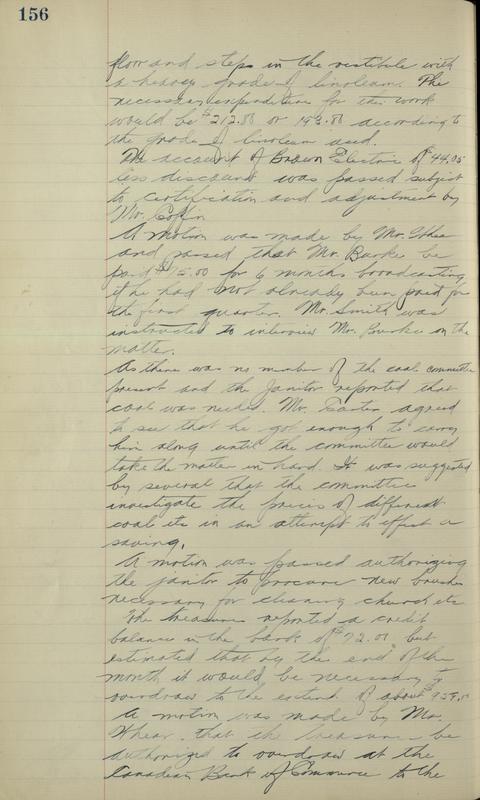 156
floor and steps in the vestibule with
a heavy grade of linoleum. The
necessary expenditure for this work
would be according to
the grade of linoleum used.
The account of Brown Electric of $44.05
less discount was passed subject
to certification and adjustment by
Mr. Coffin
A motion was made by Mr.
and passed that Mr. Burke be
paid $75.00 for 6 months broadcasting
if he had not already been paid for
the first quarter. Mr. Smith was
instructed to interview Mr. Burke on the
matter.
As there was no member of the coal committee
present and the janitor reported that
coal was needed. Mr. Easter agreed
to see that he got enough to carry
him along until the committee would
take the matter in hand. It was suggested
by several that the committee
investigate the prices of different
coal etc in an attempt to effect a
saving.
A motion was passed authorizing
the janitor to procure new brushes
necessary for cleaning church etc
The treasurer reported a credit
balance in the bank of but
estimated that by the end of the
month it would be necessary to
overdraw to the extent of about
A motion was made by Mr.
that the treasurer be
authorized to overdraw at the
Canadian Bank of Commerce to the